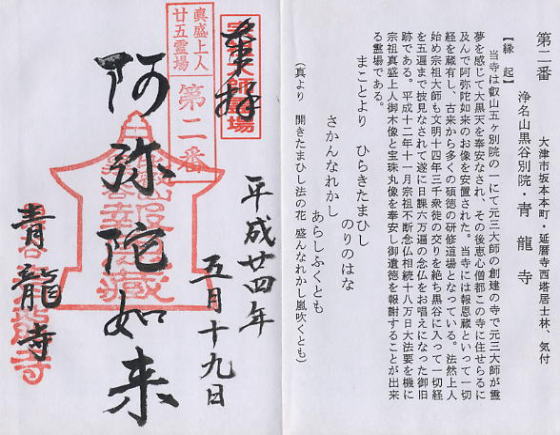 第二番
大津市坂本本町・延暦寺西塔居士林 気付
浄名山黒谷別院・青龍寺
【縁起】
当寺は叡山五ヶ別院の一にて元三大師の創建の寺で元三大師が霊
夢を感じて大黒天を奉安なされ、その後恵心僧都この寺に住せらるに
及んで阿弥陀如来のお像を安置された。当寺には報恩蔵といって一切
経を蔵有し、古来から多くの碩徳の研修道場となっている。法然上人
始め宗祖大師も文明十四年三千衆徒の交りを絶ち黒谷に入って一切経
を五遍まで披見なされて遂に日課六万遍の念仏をお唱えになった御旧
跡である。平成十二年十一月宗祖不断念仏相続十八万日大法要を機に
宗祖真盛上人御木像と宝珠丸像を奉安し御遺徳を報謝することが出来
る霊場である。
まことより ひらきたまひし
のりのはな
さかんなれかし
あらしふくとも
(真より 開きたまひし法の花 盛んなれかし嵐吹くとも)
奉拝
平成廿四年
五月十九日
真盛上人
廿五霊場
第二番
阿弥陀如来
青龍寺